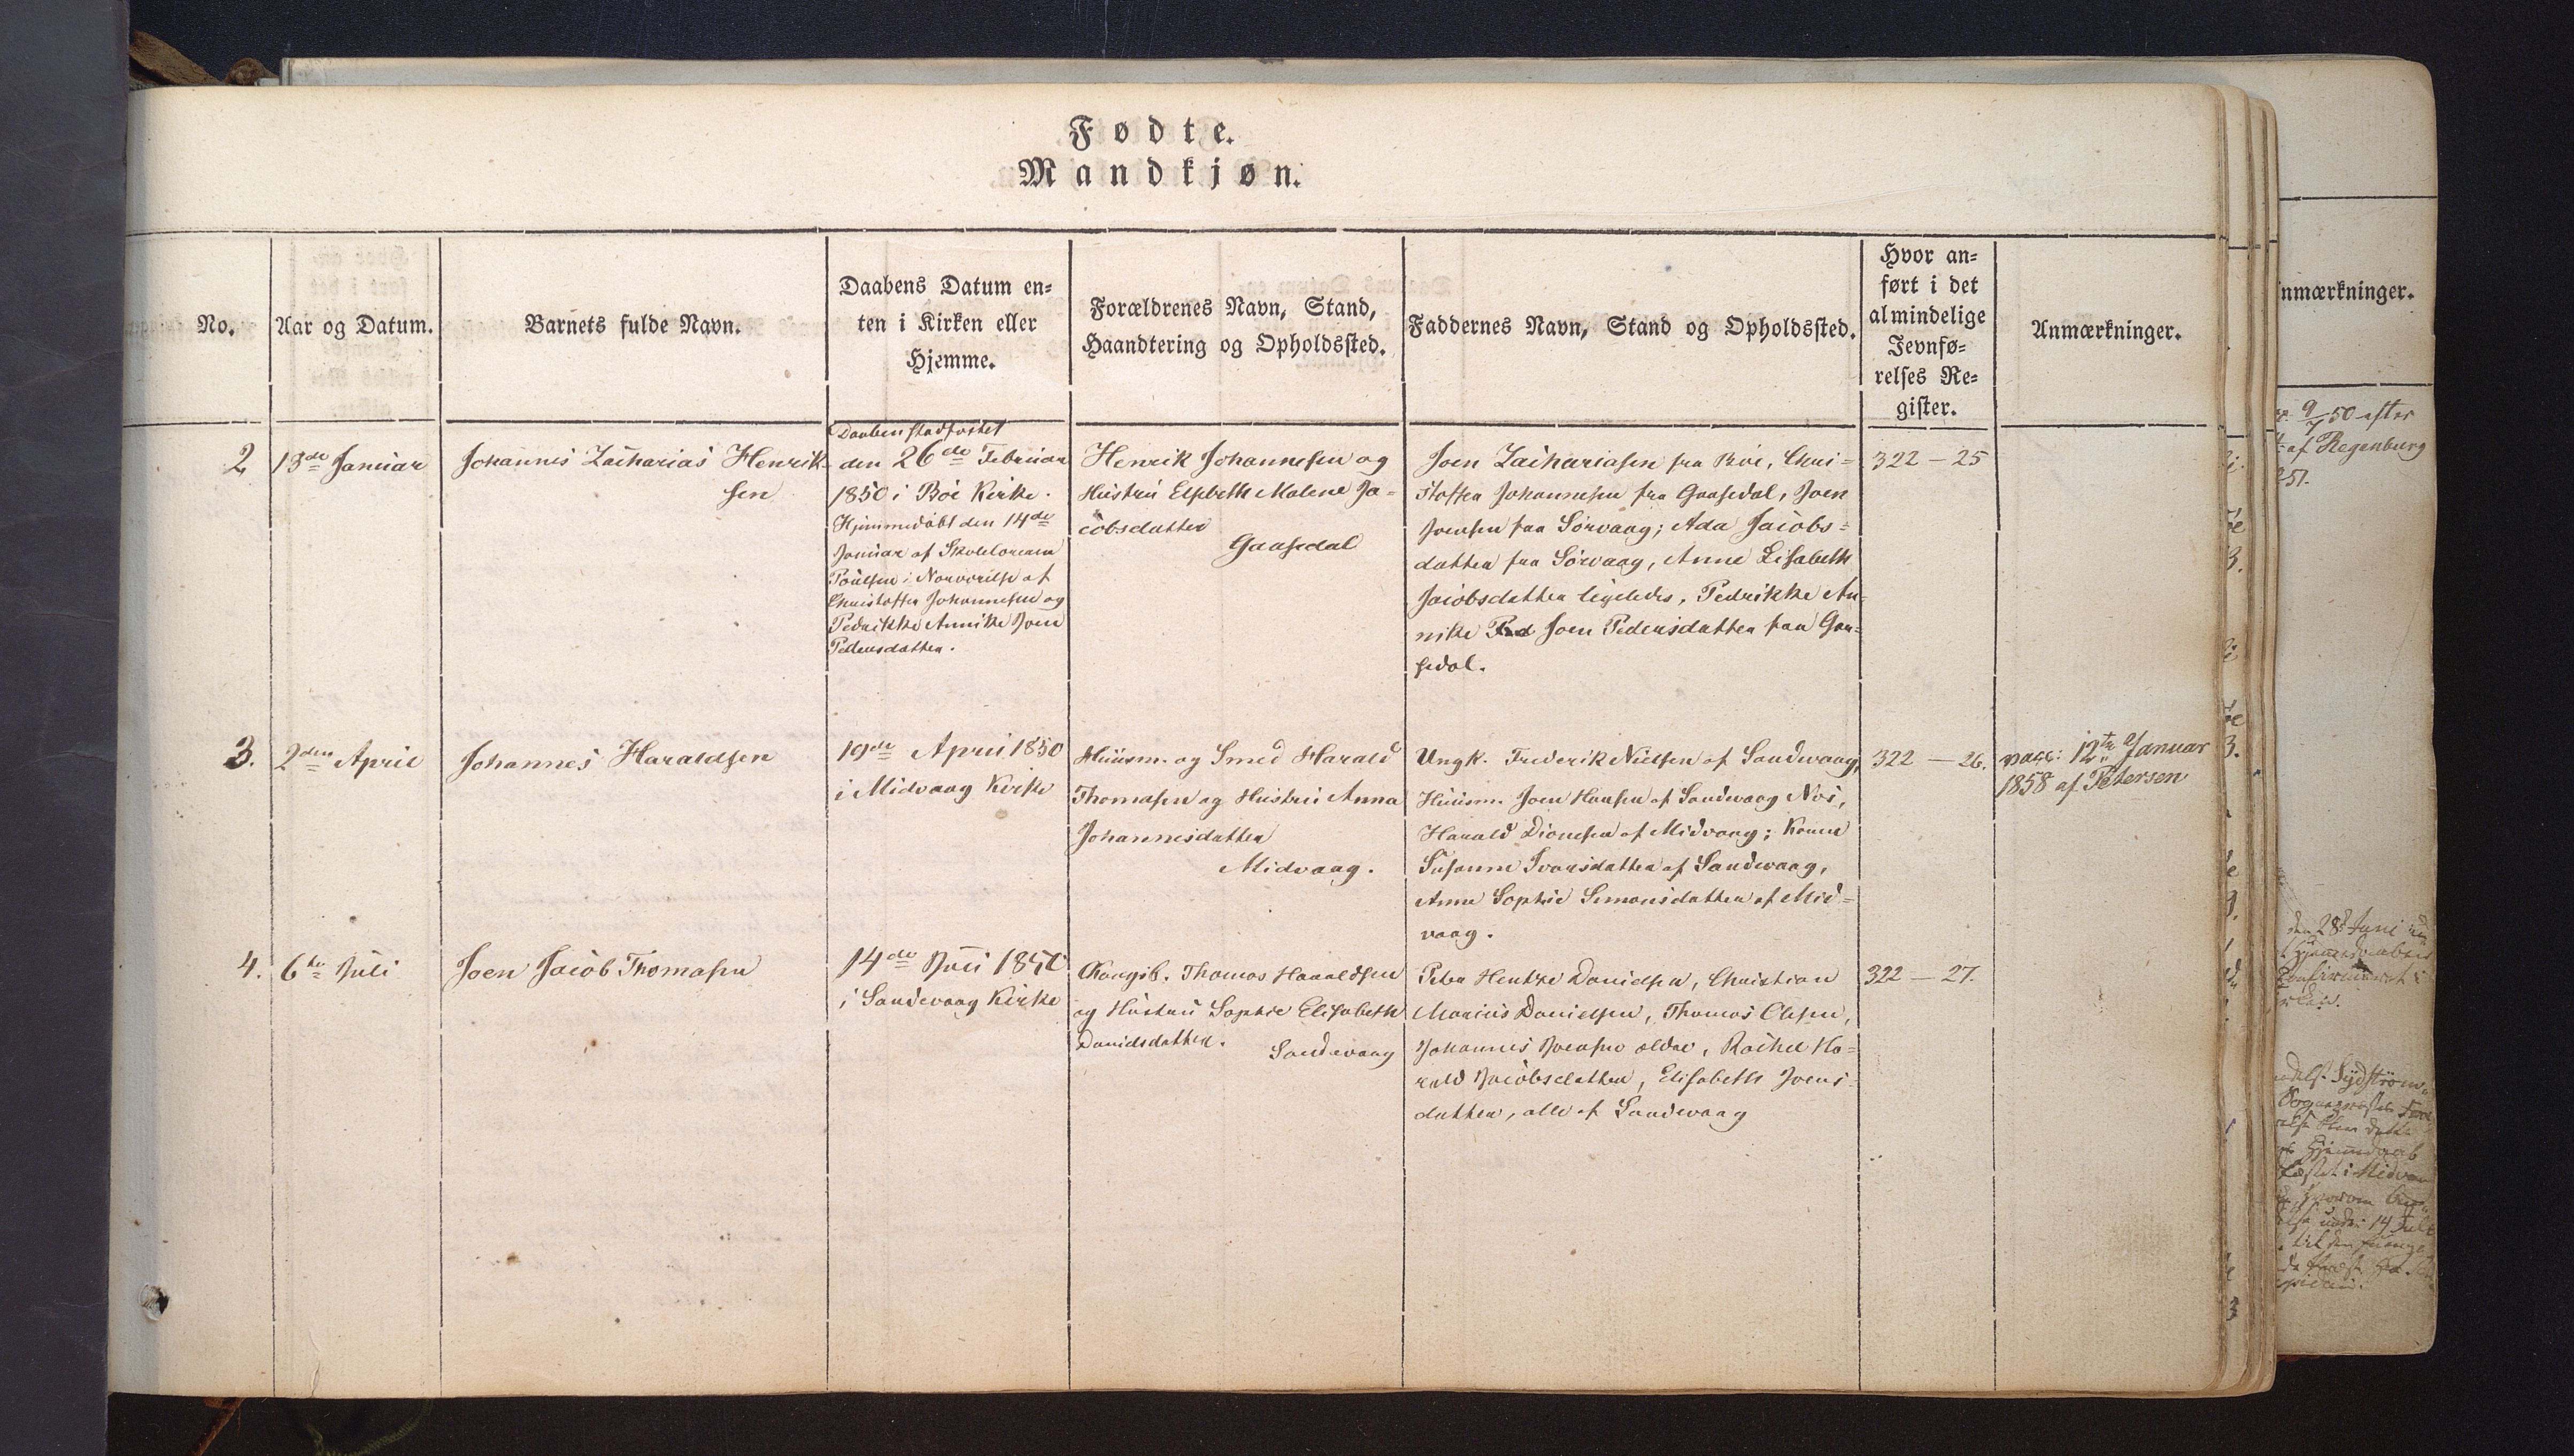 Fødte.
Mandkjøn.
No.
Aar og Datum.
Barnets fulde Navn.
Daabens Datum en=
ten i Kirken eller
Hjemme.
Forældrenes Navn, Stand,
Haandtering og Opholdssted.
Faddernes Navn, Stand og Opholdssted.
Hvor an=
ført i det
almindelige
Jevnfø=
relses Re=
gister.
Anmærkninger.
2
13de Januar
Johannes Zacharias Henrik-
sen
Daaben stadfæstet
den 26de Februar
1850 i Böe Kirke.
Hjemmedöbt den 14de
Januar af Skolelærer
Poulsen i Nærværelse af
Christoffer Johannesen og
Pedrikke Annike Joen
Pedersdatter.
Henrik Johannesen og
Hustru Elsebeth Malene Ja-
cobsdatter
Gaasedal
Joen Zachariasen fra Böe, Chri=
stoffer Johannesen fra Gaasedal, Joen
Joensen fra Sörvaag; Ada Jacobs=
datter fra Sörvaag, Anne Lisabeth
Jacobsdatter ligeledes, Pedrikke An-
nike Joen Pedersdatter fra Gaa-
sedal.
322 — 25
3.
2den April
Johannes Haraldsen
19de April 1850
i Midvaag Kirke
Huusm. og Smed Harald
Thomasen og Hustru Anna
Johannesdatter
Midvaag.
Ungk. Frederik Nielsen af Sandevaag,
Huusm. Joen Hansen af Sandevaag
Harald Dionesen af Midvaag; Konen
Susanne Ivarsdatter af Sandevaag,
Anne Sophie Simonsdatter af Mid=
vaag.
322 — 26.
vacc: 12te Januar
1858 af Petersen
4.
6te Juli
Joen Jacob Thomasen
14de Juli 1850
i Sandevaag Kirke
Kongsb. Thomas Haraldsen
og Hustru Sophie Elisabeth
Danielsdatter.
Sandevaag
Peter Hentze Danielsen, Christian
Marius Danielsen, Thomas Olesen,
Johannes Joensen ældre, Rachel Ha=
rald Jacobsdatter, Elisabeth Joens-
datter, alle af Sandevaag
322 — 27.
nmærkninger.
9/7 50 efter
af Regenburg
251.
den 28de Juni